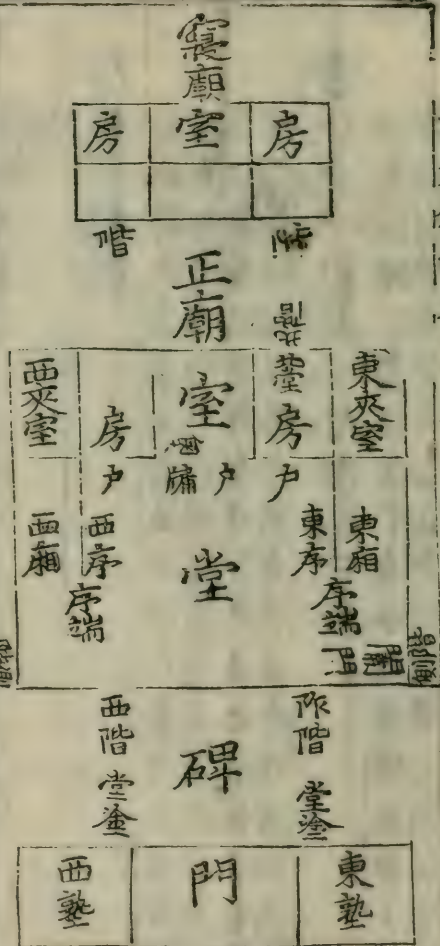 寢廟
房 室 房
階 階
正廟
北堂
西夾室 房 室 房 東夾室
戶 牖 戶 戶
西廂 西序 堂 東序 東廂
序端 序端
側階
西階 碑 阼階
堂塗 堂塗
西塾 門 東塾